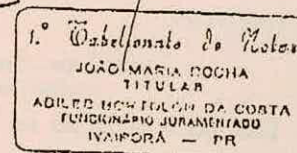 1.º Tabelionato de Notas
JOÃO MARIA ROCHA
TITULAR
ADILEO BORTOLON DA COSTA
FUNCIONÁRIO JURAMENTADO
IVAIPORÃ — PR